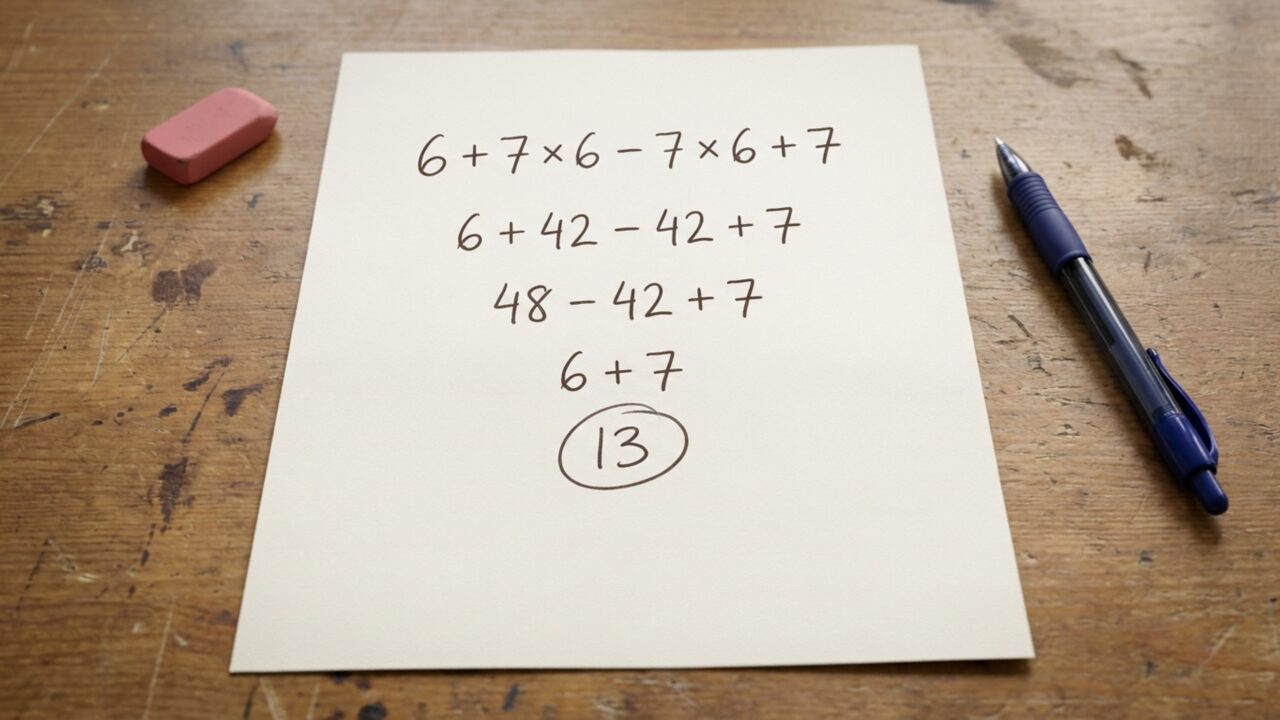 6 + 7 × 6 − 7 × 6 + 7
6 + 42 − 42 + 7
48 − 42 + 7
6 + 7
13